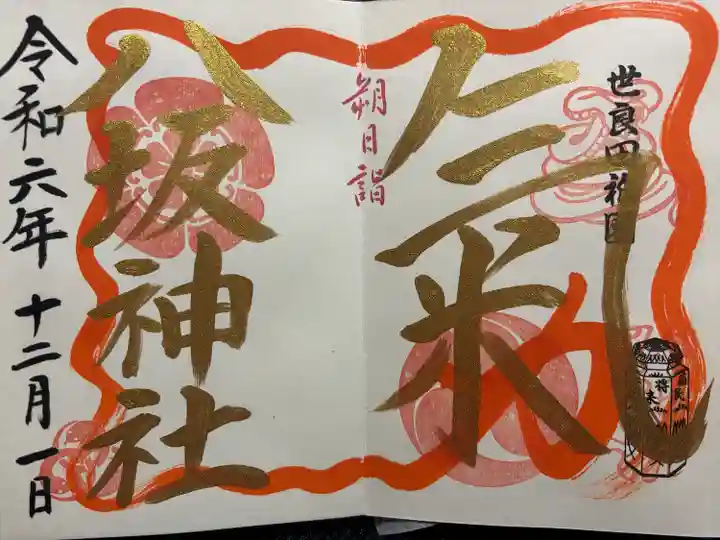 世良田祇園
氣
朔日詣
八坂神社
令和六年 十二月一日